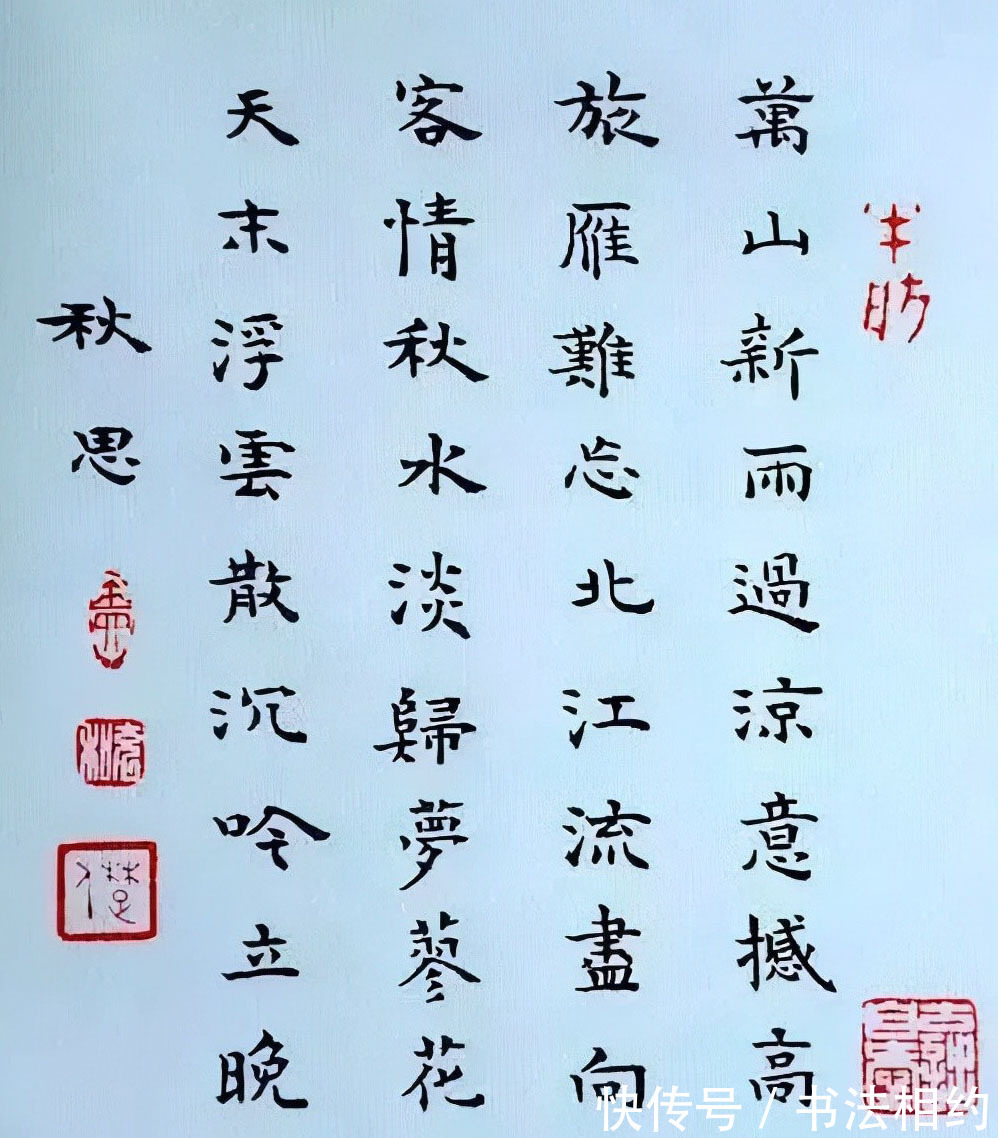 萬山新雨過涼意撼高
旅雁難忘北江流盡向
客情秋水淡歸夢蓼花
天末浮雲散沉吟立晚
秋思
快传号 / 书法相约